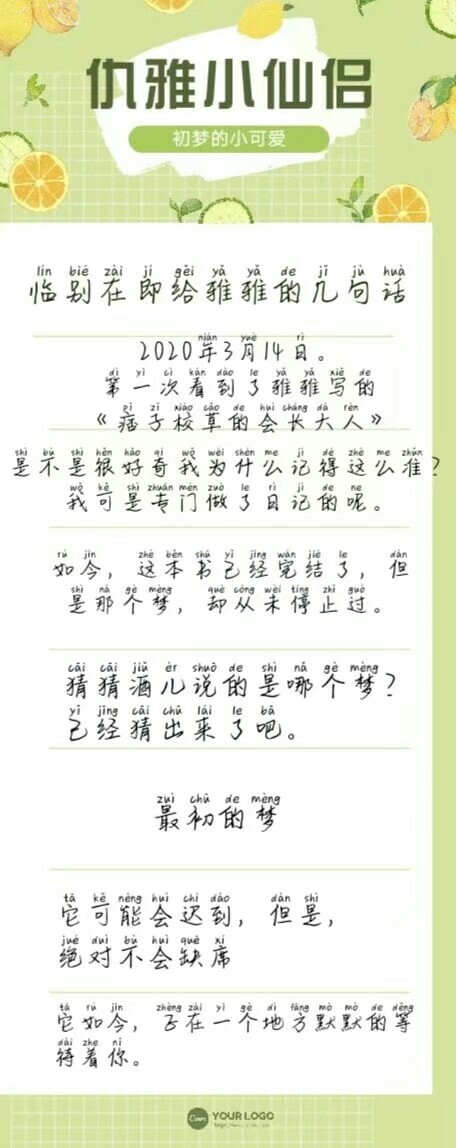 仇雅小仙侣
初梦的小可爱
lín bié zài jí gěi yǎ yǎ de jǐ jù huà
临别在即给雅雅的几句话
nián yuè rì
2020年3月14日。
dì yī cì kàn dào le yǎ yǎ xiě de
第一次看到了雅雅写的
pǐ zǐ xiào cǎo de huì cháng dà rén
《痞子校草的会长大人》
shì bù shì hěn hǎo qí wǒ wèi shén me jì dé zhè me zhǔn
是不是很好奇我为什么记得这么准?
wǒ kě shì zhuān mén zuò le rì jì de ne
我可是专门做了日记的呢。
rú jīn zhè běn shū yǐ jīng wán jié le dàn
如今，这本书已经完结了，但
shì nà gè mèng què cóng wèi tíng zhǐ guò
是那个梦，却从未停止过。
cāi cāi jiǔ ér shuō de shì nǎ gè mèng
猜猜酒儿说的是哪个梦?
yǐ jīng cāi chū lái le bā
已经猜出来了吧。
zuì chū de mèng
最初的梦
tā kě néng huì chí dào dàn shì
它可能会迟到，但是，
jué duì bù huì quē xí
绝对不会缺席
tā rú jīn zhèng zài yī gè dì fāng mò mò de děng
它如今，正在一个地方默默的等
dài zhe nǐ
待着你。
Canva
YOUR LOGO